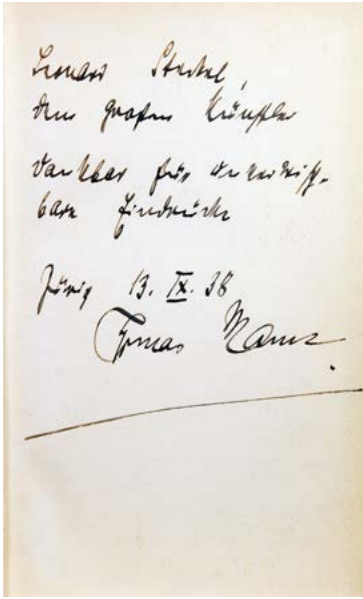 Leonard Steckel,
dem großen Künstler
dankbar für unverwisch-
bare Eindrücke
Zürich 13. IX. 38
Thomas Mann